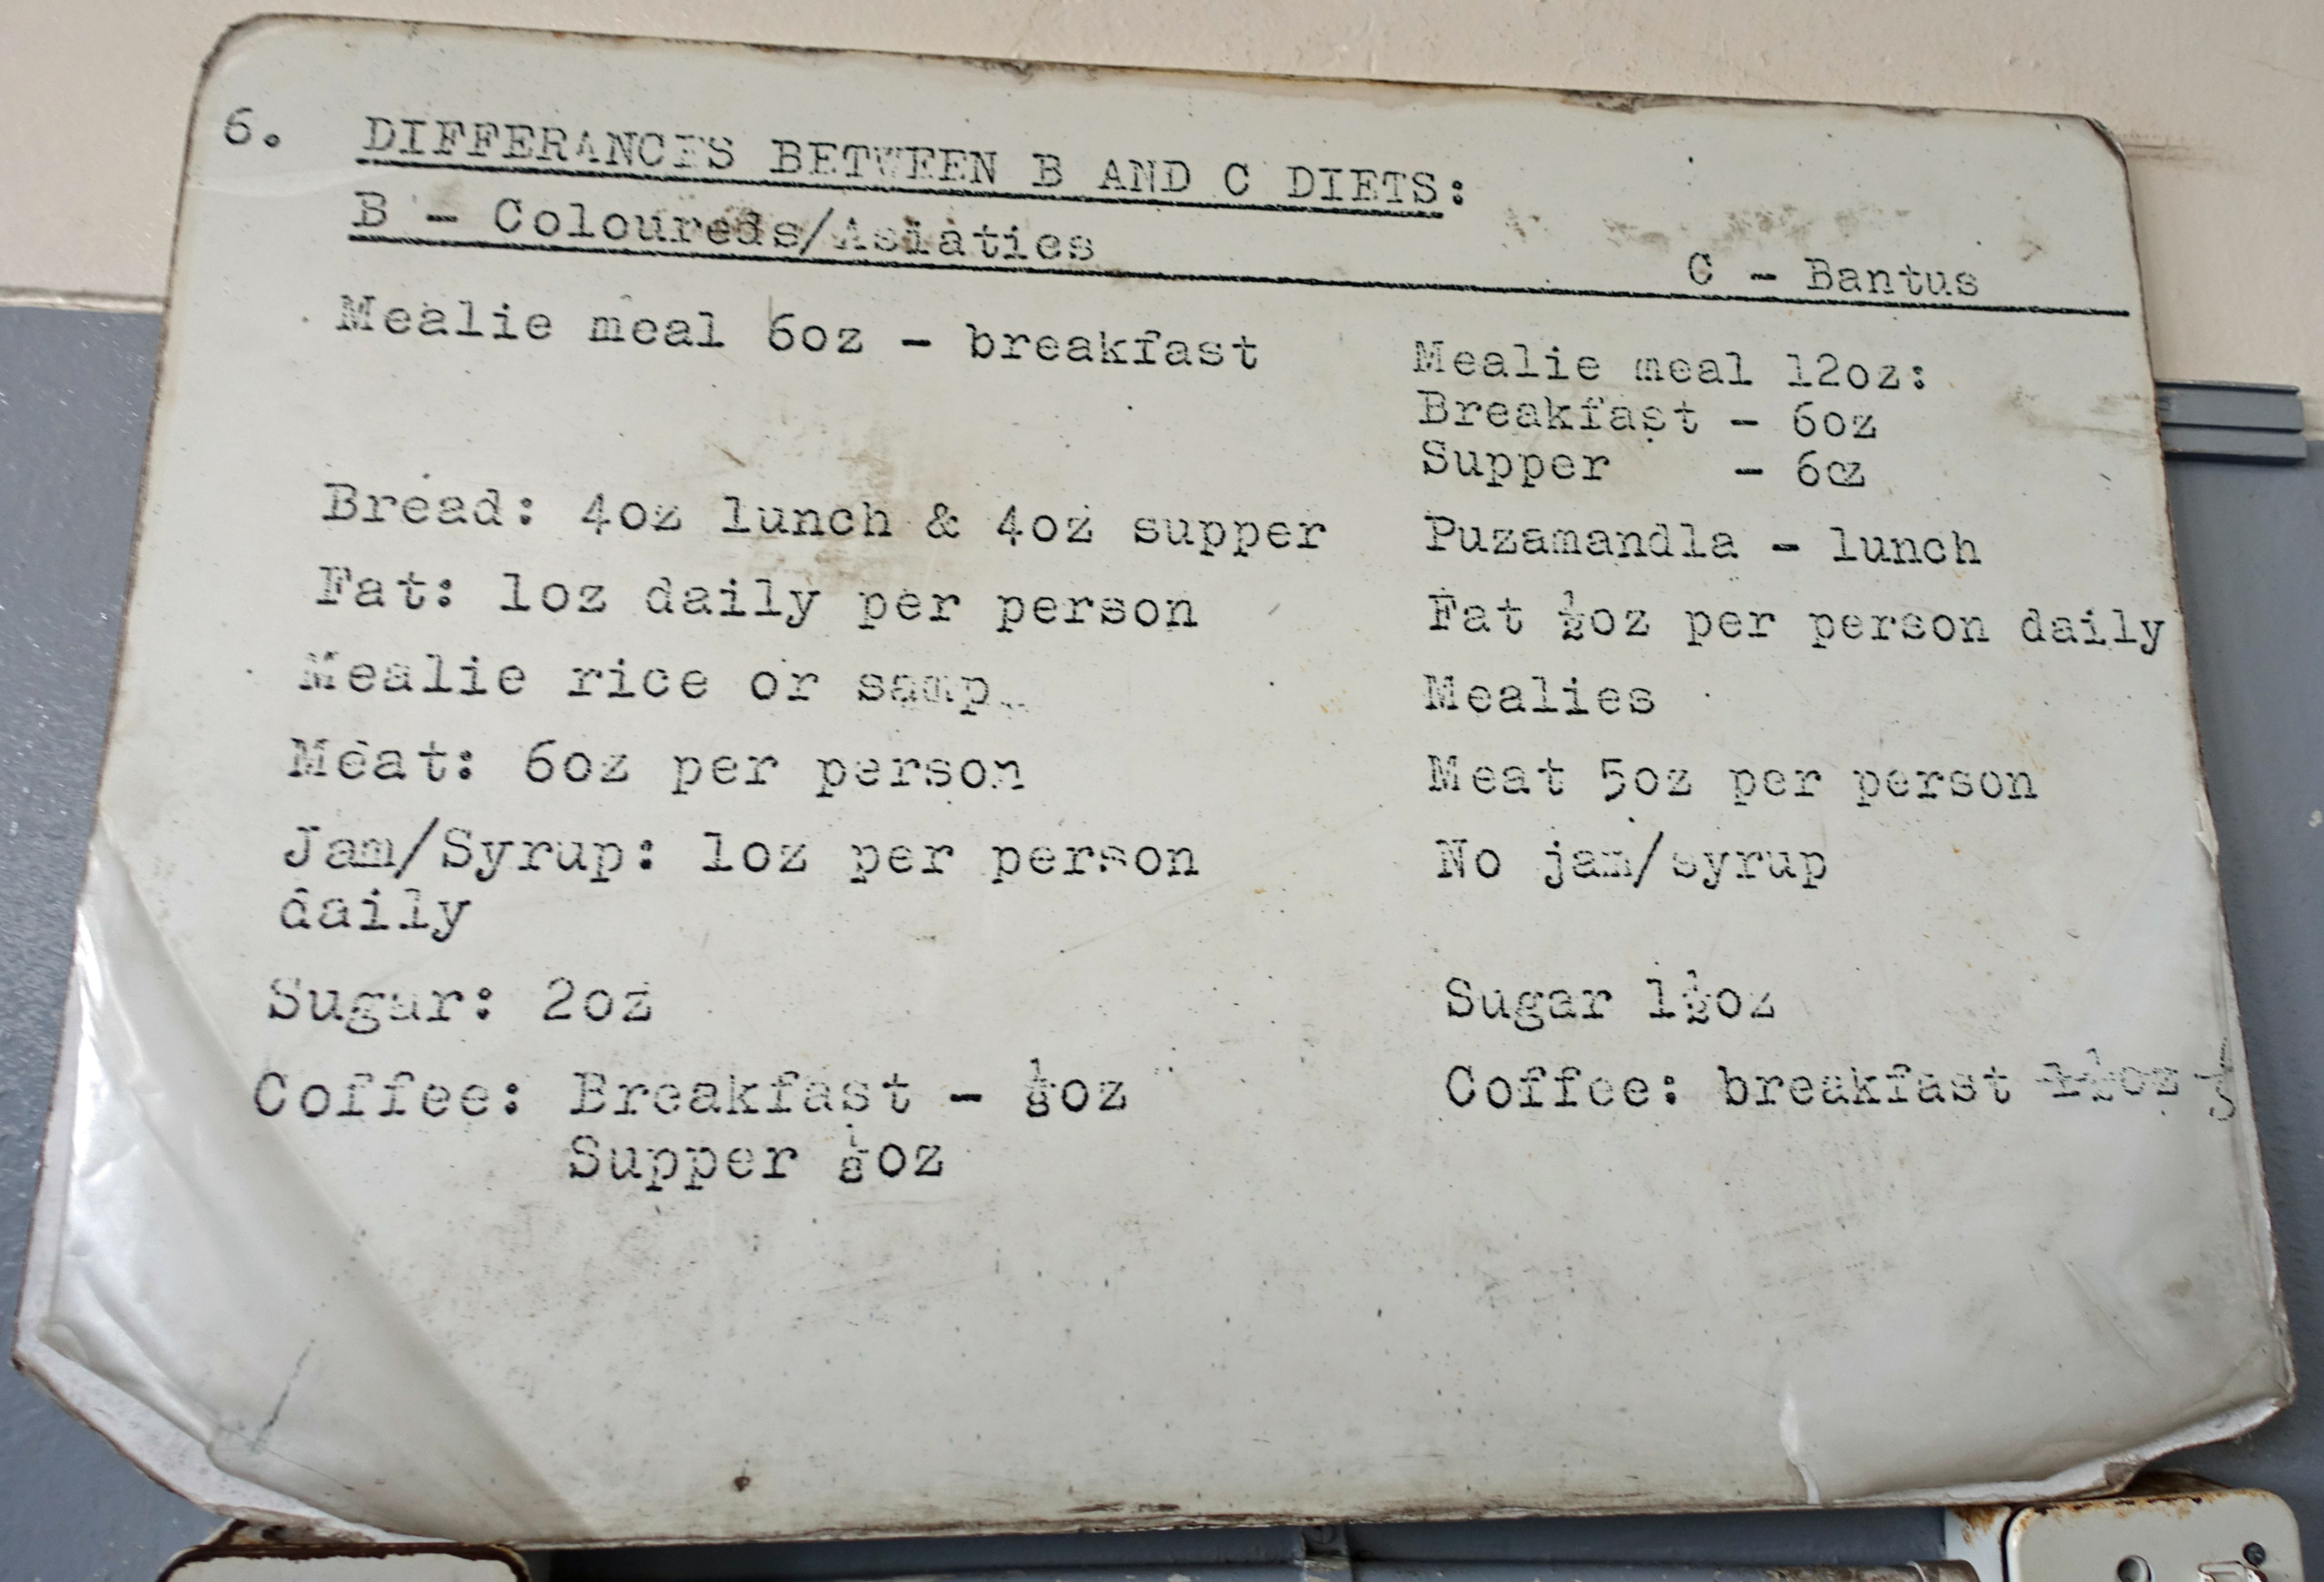 6. DIFFERANCES BETWEEN B AND C DIETS:
B - Coloureds/Asiatics
C - Bantus
Mealie meal 6oz - breakfast
Mealie meal 12oz:
Breakfast - 6oz
Supper - 6oz
Bread: 4oz lunch & 4oz supper
Puzamandla - lunch
Fat: 1oz daily per person
Fat ½oz per person daily
Mealie rice or samp
Mealies
Meat: 6oz per person
Meat 5oz per person
Jam/Syrup: 1oz per person
daily
No jam/syrup
Sugar: 2oz
Sugar 1½oz
Coffee: Breakfast - ⅛oz
Supper ⅛oz
Coffee: breakfast